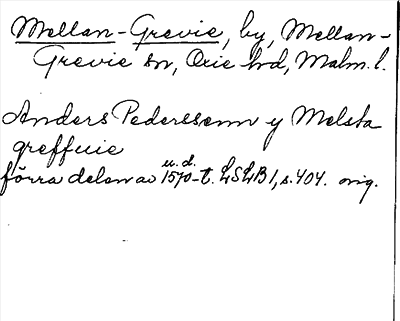 Mellan-Grevie, by, Mellan-
Grevie sn, Oxie hd, Malm. l.
Anders Pederssenn y Melsta
greffuie
u. d.
förra delen av 1570-t. LSLB 1, s. 404. orig.